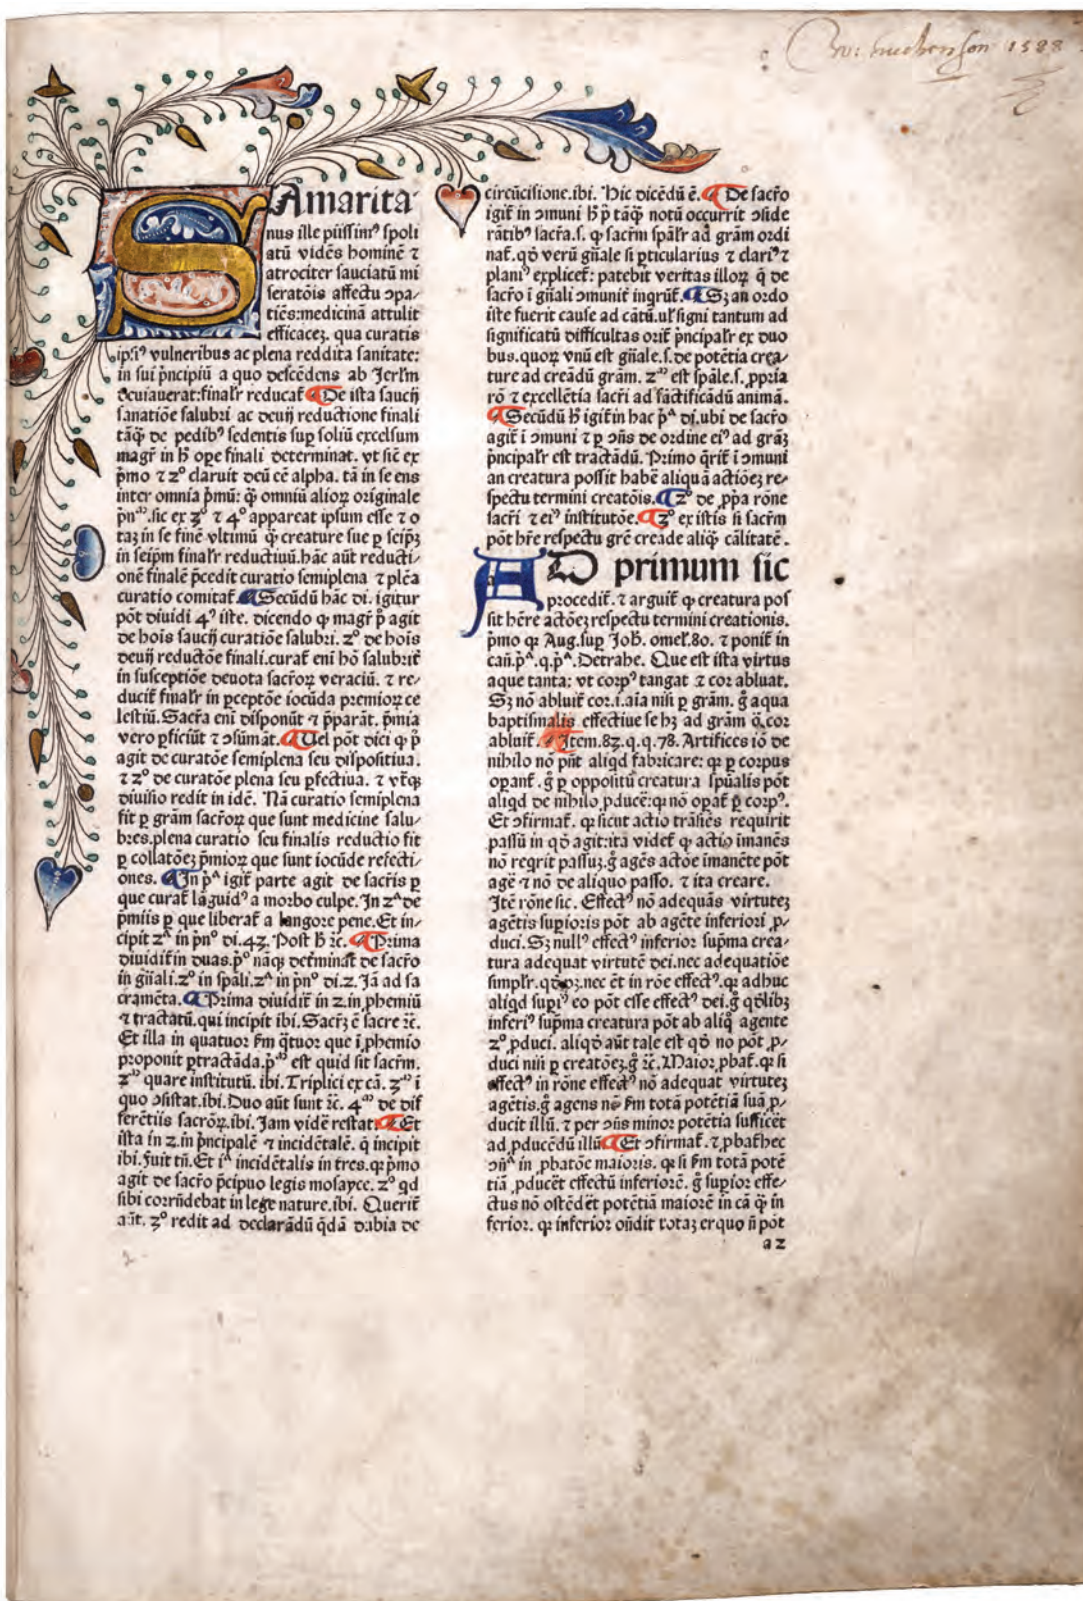 1588
SAmarita
nus ille piissimꝰ spoli
atū vidēs hominē ⁊
atrociter sauciatū mi
seratōis affectu ɔpa/
tiēs: medicinā attulit
efficaceʒ. qua curatis
ipsiꝰ vulneribus ac plena reddita sanitate:
in sui p̄ncipiū a quo descēdens ab Jerl̄m
deuiauerat: finalr̄ reducat̄ ¶ De ista saucij
sanatiōe salubri ac deuij reductione finali
tāq̄ de pedibꝰ sedentis sup soliū excelsum
magr̄ in h̄ ope finali determinat. vt sic̄ ex
p̄mo ⁊ 2º claruit deū eē alpha. tā in se ens
inter omnia p̄mū: q̄ omniū alioꝝ originale
p̄nᵐ. sic ex 3º ⁊ 4º appareat ipsum esse ⁊ o
taʒ in se finē vltimū q̄ creature sue p seip̄ʒ
in seip̄m finalr̄ reductiuū. hāc aūt reducti/
onē finalē p̄cedit curatio semiplena ⁊ plēa
curatio comitat̄ ¶ Secūdū hāc di. igitur
pōt diuidi 4ꝰ iste. dicendo ꝙ magr̄ p̄ agit
de hoīs saucij curatiōe salubri. 2º de hoīs
deuij reductōe finali. curat̄ eni hō salubrit̄
in susceptiōe deuota sacroꝝ veraciū. ⁊ re/
ducit̄ finalr̄ in ꝑceptōe iocūda premioꝝ ce
lestiū. Sacr̄a eni disponūt ⁊ p̄parāt. p̄mia
vero ꝑficiūt ⁊ ɔsūmāt. ¶ Uel pōt dici ꝙ p̄
agit de curatōe semiplena seu dispositiua.
⁊ 2º de curatōe plena seu ꝑfectiua. ⁊ vtr̄qꝫ
diuisio redit in idē. Nā curatio semiplena
fit ꝑ grām sacroꝝ que sunt medicine salu/
bres. plena curatio seu finalis reductio fit
ꝑ collatōeʒ p̄mioꝝ que sunt iocūde refecti/
ones. ¶ In pᵃ igit̄ parte agit de sacr̄is ꝑ
que curat̄ lāguidꝰ a morbo culpe. In 2ᵃ de
p̄miis ꝑ que liberat̄ a langore pene. Et in/
cipit 2ᵃ in p̄nº di. 43. Post h̄ ⁊c̄. ¶ Prima
diuidit̄ in duas. pº nāqꝫ det̄minat de sacr̄o
in gn̄ali. 2º in sp̄ali. 2ᵃ in p̄nº di. 2. Jā ad sa
cramēta. ¶ Prima diuidit̄ in 2. in phemiū
⁊ tractatū. qui incipit ibi. Sacr̄ʒ ē sacre ⁊c̄.
Et illa in quatuor fm q̄tuor que ī phemio
proponit ꝑtractāda. pᵐ est quid sit sacr̄m.
2ᵐ quare institutū. ibi. Triplici ex cā. 3ᵐ ī
quo ɔsistat. ibi. Duo aūt sunt ⁊c̄. 4ᵐ de dif
ferētiis sacrōꝝ. ibi. Jam vidē restat. ¶ Et
ista in 2. in p̄ncipalē ⁊ incidētalē. q̄ incipit
ibi. Fuit tn̄. Et iᵃ incidētalis in tres. qꝛ p̄mo
agit de sacr̄o p̄cipuo legis mosayce. 2º qd
sibi corrn̄debat in lege nature. ibi. Querit̄
aūt. 3º redit ad declarādū q̄dā dubia de
circūcisione. ibi. Hic dicēdū ē. ¶ De sacr̄o
igit̄ in ɔmuni h̄ p̄ tāq̄ notū occurrit ɔside
rātibꝰ sacr̄a. s. ꝙ sacr̄m sp̄alr̄ ad grām ordi
nat̄. qd̄ verū gn̄ale si ꝑticularius ⁊ clariꝰ ⁊
planiꝰ explicet̄: patebit veritas illoꝝ q̄ de
sacr̄o ī gn̄ali ɔmunit̄ inqrūt̄. ¶ Sʒ an ordo
iste fuerit cause ad cātū. vl̄ signi tantum ad
significatū difficultas orit̄ p̄ncipalr̄ ex duo
bus. quoꝝ vnū est gn̄ale. s. de potētia crea/
ture ad creādū grām. 2ᵐ est sp̄ale. s. ꝓpria
rō ⁊ excellētia sacr̄i ad sāctificādū animā.
¶ Secūdū h̄ igit̄ in hac pᵃ di. ubi de sacr̄o
agit̄ ī ɔmuni ⁊ ꝑ ɔn̄s de ordine eiꝰ ad grāʒ
p̄ncipalr̄ est tractādū. Primo q̄rit̄ ī ɔmuni
an creatura possit habē aliquā actiōeʒ re/
spectu termini creatōis. ¶ 2º de ꝓpa rōne
sacr̄i ⁊ eiꝰ institutōe. ¶ 3º ex istis si sacr̄m
pōt hr̄e respectu gr̄e creāde aliq̄ cālitatē.
AD primum sic
procedit̄. ⁊ arguit̄ ꝙ creatura pos
sit hēre actōeʒ respectu termini creationis.
p̄mo qꝛ Aug. sup Joh̄. omel̄. 80. ⁊ ponit̄ in
can̄. pᵃ. q. pᵃ. Detrahe. Que est ista virtus
aque tanta: vt corpꝰ tangat ⁊ cor abluat.
Sʒ nō abluit̄ cor. i. aīa nisi ꝑ grām. g̊ aqua
baptismalis effectiue se hʒ ad grām q̄ cor
abluit̄. ¶ Item. 83. q. q. 78. Artifices iō de
nihilo nō pn̄t aliqd fabricare: qꝛ ꝑ corpus
opant̄. g̊ ꝑ oppositū creatura spūalis pōt
aliqd de nihilo ꝓducē: qꝛ nō opat̄ ꝑ corpꝰ.
Et ɔfirmat̄. qꝛ sicut actio trāsiēs requirit
passū in qd̄ agit: ita videt̄ ꝙ actio imanēs
nō reqrit passuʒ. g̊ agēs actōe imanēte pōt
agē ⁊ nō de aliquo passo. ⁊ ita creare.
Itē rōne sic. Effectꝰ nō adequās virtuteʒ
agētis supioris pōt ab agēte inferiori ꝓ/
duci. Sʒ nullꝰ effectꝰ inferior sup̄ma crea/
tura adequat virtutē dei. nec adequatiōe
simplr̄. qd̄ pʒ. nec ēt in rōe effectꝰ. qꝛ adhuc
aliqd supiꝰ eo pōt esse effectꝰ dei. g̊ qd̄libʒ
inferiꝰ sup̄ma creatura pōt ab aliq̊ agente
2º ꝓduci. aliqd̄ aūt tale est qd̄ no pōt ꝓ/
duci nisi ꝑ creatōeʒ. g̊ ⁊c̄. Maior ꝓbat̄. qꝛ si
effectꝰ in rōne effectꝰ nō adequat virtuteʒ
agētis. g̊ agens nō fm totā potētiā suā ꝓ/
ducit illū. ⁊ per ɔn̄s minor potētia sufficēt
ad ꝓducēdū illū ¶ Et ɔfirmat̄. ⁊ ꝓbat̄ hec
ɔn̄ᵃ in ꝓbatōe maioris. qꝛ si fm totā potē
tiā ꝓducēt effectū inferiorē. g̊ supior effe/
ctus nō ostēdēt potētiā maiorē in cā q̄ in
ferior. qꝛ inferior on̄dit totaʒ ex quo n̄ pōt
a2